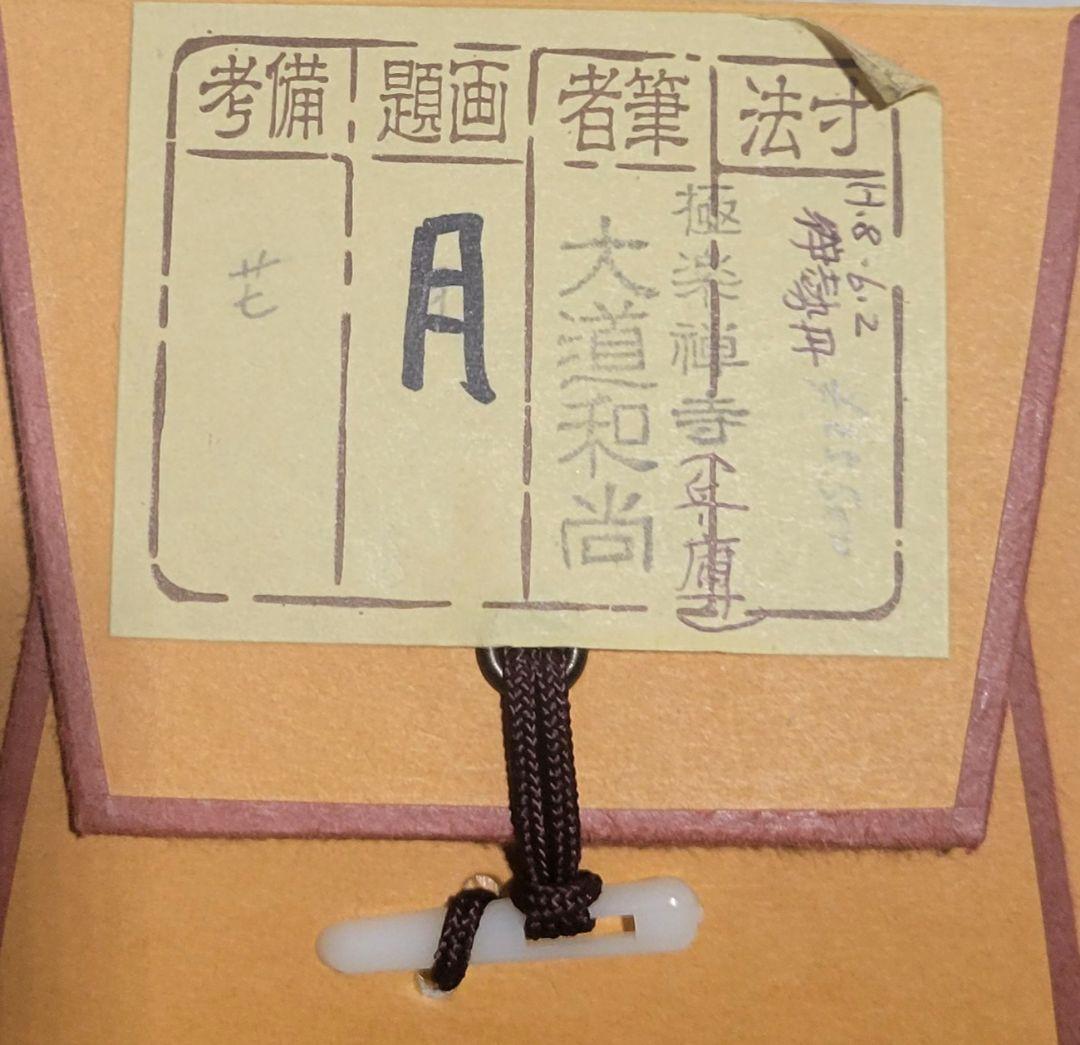 寸法
H.8.6.2
伊勢丹
筆者
極楽禅寺(兵庫)
大道和尚
画題
月
備考